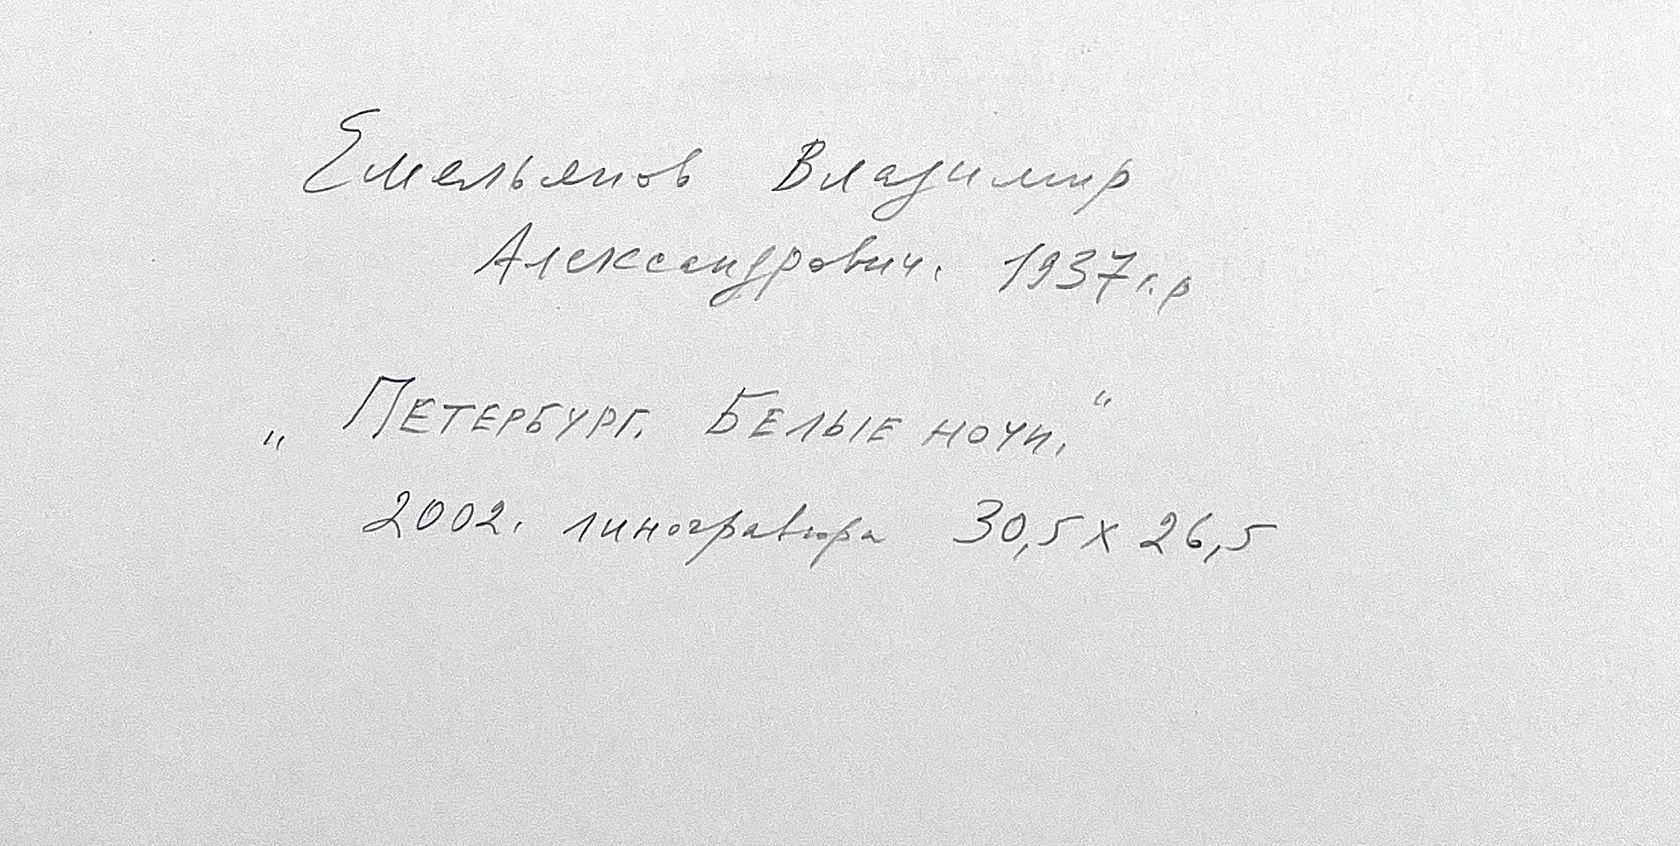 Емельянов Владимир
Александрович. 1937 г.р
„ Петербург. Белые ночи. “
2002. линогравюра 30,5 х 26,5